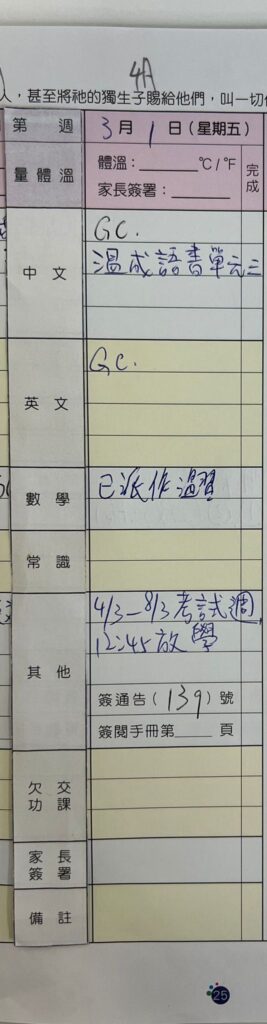 4A
人，甚至將祂的獨生子賜給他們，叫一切
第 週 3月1日（星期五）
量體溫 體溫：______°C/°F 完成
家長簽署：______
中文 G.C.
溫成語書單元三
英文 G.C.
數學 已派作溫習
常識
其他 4/3－8/3考試週,
12:45放學
簽通告（139）號
簽閱手冊第____頁
欠交功課
家長簽署
備註
25